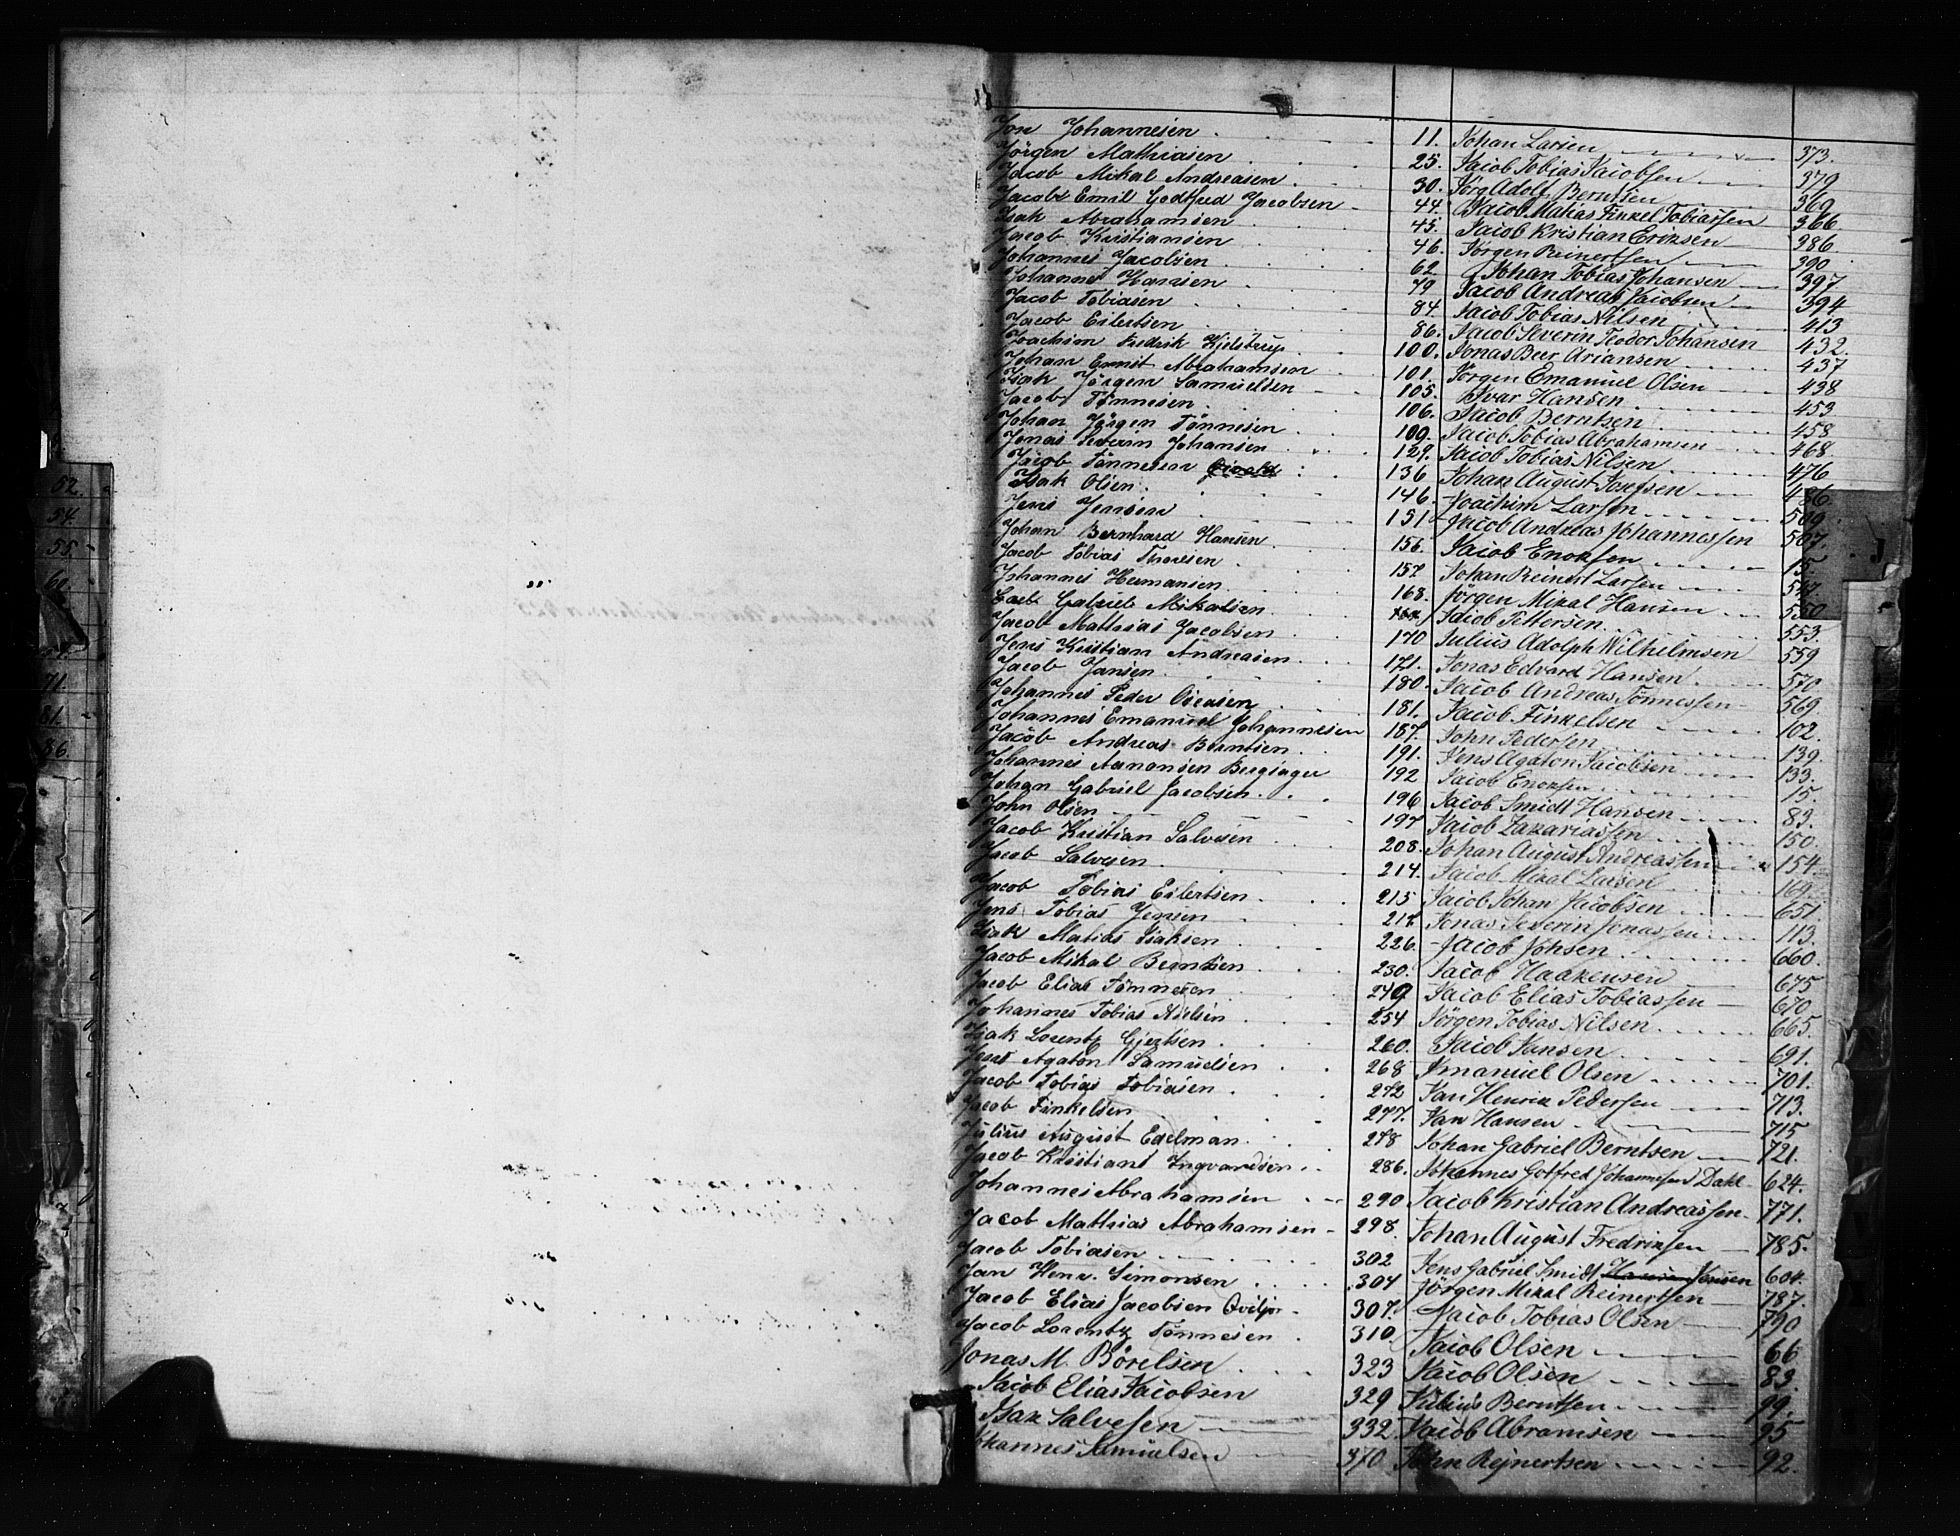 Jon Johannesen 11.
Jörgen Mathiasen 25.
Jacob Mikal Andreasen 30.
Jacob Emil Godtfred Jacobsen 44.
Isak Abrahamsen 45.
Jacob Kristiansen 46.
Johannes Jacobsen 62
Johannes Hansen 79
Jacob Tobiasen 84.
Jacob Eilertsen 86.
Joachim Fredrik Hjelstrup 100.
Johan Ernst Abrahamsen 101.
Isak Jörgen Samuelsen 105.
Jacob Tönnesen 106.
Johan Jörgen Tönnesen 109.
Jonas Severin Johansen 129.
Jacob Tönnesen 136
Isak Olsen 146.
Jens Jensen 151
Johan Bernhard Hansen 156.
Jacob Tobias Thorsen 157
Johannes Hermansen 168.
Gabriel Mikalsen
Jacob Mathias Jacobsen 170
Jens Kristian Andreasen 171.
Jacob Jansen 180.
Johannes Peder Oseasen 181.
Johannes Emanuel Johannesen 187.
Jacob Andreas Berntsen 191.
Johannes Aanonsen Berginger 192
Johan Gabriel Jacobsen 196
John Olsen 197
Jacob Kristian Salvesen 208.
Jacob Salvesen 214.
Jacob Tobias Eilertsen 215
Jens Tobias Jensen 217
Isak Matias Isaksen 226.
Jacob Mikal Berntsen 230.
Jacob Elias Tönnesen 249
Johannes Tobias Nielsen 254
Isak Lorentz Gjertsen 260.
Jens Agaton Samuelsen 268
Jacob Tobias Tobiasen 272
Jacob Finkelsen 277.
Julius August Edelman 278
Jacob Kristiant Ingvardsen 286.
Johannes Abrahamsen 290
Jacob Mathias Abrahamsen 298.
Jacob Tobiasen 302
Jan Henr. Simonsen 304
Jacob Elias Jacobsen 307.
Jacob Lorentz Tönnesen 310
Jonas M. Börelsen 323
Jacob Elias Jacobsen 329
Isak Salvesen 332
Johannes Samuelsen 370
Johan Larsen 373.
Jacob Tobias Jacobsen 379
Jörg Adolf Berntsen 369
Jacob Matias Finkel Tobiassen 366
Jacob Kristian Eriksen 386
Jörgen Reinertsen 390
Johan Tobias Johansen 397
Jacob Andreas Jacobsen 394
Jacob Tobias Nilsen 413
Jacob Severin Teodor Johansen 432.
Jonas Beer Ariansen 437
Jörgen Emanuel Olsen 438
Ivar Hansen 453
Jacob Berntsen 458
Jacob Tobias Abrahamsen 468
Jacob Tobias Nilsen 476
Johan August Josefsen 486
Joachim Larsen 509
Jacob Andreas Johannessen 507.
Jacob Enoksen 15.
Johan Reinert Larsen
Jörgen Mikal Hansen 550
Jacob Pettersen 553.
Julius Adolph Wilhelmsen 559
Jonas Edvard Hansen 570
Jacob Andreas Tönnessen 569.
Jacob Finkelsen 102.
John Pedersen 139.
Jens Agaton Jacobsen 133.
Jacob Enoksen 15.
Jacob Smidt Hansen 83.
Jacob Zakariassen 150.
Johan August Andreassen 154.
Jacob Mikal Larsen 169.
Jacob Johan Jacobsen 651
Jonas Severin Jonassen 113.
Jacob Johsen 660.
Jacob Haakensen 675
Jacob Elias Tobiassen 670
Jörgen Tobias Nilsen 665.
Jacob Jansen 691.
Imanuel Olsen 701.
Jan Henrik Pedersen 713.
Jan Hansen 715
Johan Gabriel Berntsen 721.
Johannes Gotfred Johannessen Dahl 624.
Jacob Kristian Andreassen 771.
Johan August Fredriksen 785.
Jens Gabriel Smidt Hansen Jensen 604.
Jörgen Mikal Reinertsen 787.
Jacob Tobias Olsen 790
Jacob Olsen 66
Jacob Olsen 83.
Julius Berntsen 99.
Jacob Abramsen 95
John Rejnertsen 92.
52.
54.
55.
60.
71.
81.
86.